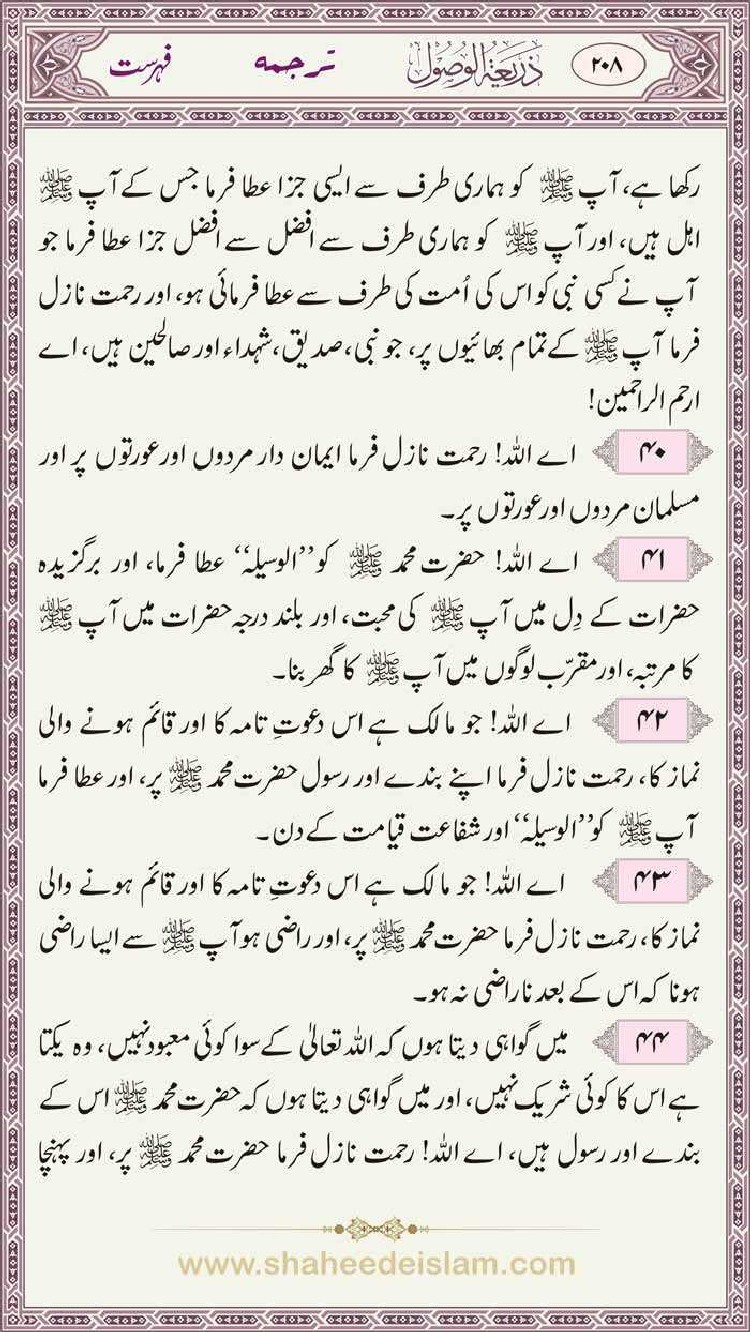 ۲۰۸ ذَرِيعَةُ الْوُصُوْل ترجمہ فہرست
رکھا ہے، آپ ﷺ کو ہماری طرف سے ایسی جزا عطا فرما جس کے آپ ﷺ
اہل ہیں، اور آپ ﷺ کو ہماری طرف سے افضل سے افضل جزا عطا فرما جو
آپ نے کسی نبی کو اس کی اُمت کی طرف سے عطا فرمائی ہو، اور رحمت نازل
فرما آپ ﷺ کے تمام بھائیوں پر، جو نبی، صدیق، شہداء اور صالحین ہیں، اے
ارحم الراحمین!
۴۰ اے اللہ! رحمت نازل فرما ایمان دار مردوں اور عورتوں پر اور
مسلمان مردوں اور عورتوں پر۔
۴۱ اے اللہ! حضرت محمد ﷺ کو ’’الوسیلہ‘‘ عطا فرما، اور برگزیدہ
حضرات کے دِل میں آپ ﷺ کی محبت، اور بلند درجہ حضرات میں آپ ﷺ
کا مرتبہ، اور مقرّب لوگوں میں آپ ﷺ کا گھر بنا۔
۴۲ اے اللہ! جو مالک ہے اس دعوتِ تامہ کا اور قائم ہونے والی
نماز کا، رحمت نازل فرما اپنے بندے اور رسول حضرت محمد ﷺ پر، اور عطا فرما
آپ ﷺ کو ’’الوسیلہ‘‘ اور شفاعت قیامت کے دن۔
۴۳ اے اللہ! جو مالک ہے اس دعوتِ تامہ کا اور قائم ہونے والی
نماز کا، رحمت نازل فرما حضرت محمد ﷺ پر، اور راضی ہو آپ ﷺ سے ایسا راضی
ہونا کہ اس کے بعد ناراضی نہ ہو۔
۴۴ میں گواہی دیتا ہوں کہ اللہ تعالیٰ کے سوا کوئی معبود نہیں، وہ یکتا
ہے اس کا کوئی شریک نہیں، اور میں گواہی دیتا ہوں کہ حضرت محمد ﷺ اس کے
بندے اور رسول ہیں، اے اللہ! رحمت نازل فرما حضرت محمد ﷺ پر، اور پہنچا
www.shaheedeislam.com